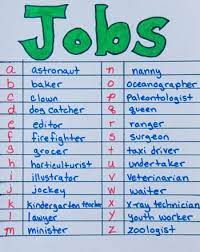 Jobs
a astronaut n nanny
b baker o oceanographer
c clown p paleontologist
d dog catcher q queen
e editor r ranger
f firefighter s surgeon
g grocer t taxi driver
h horticulturist u undertaker
i illustrator v veterinarian
j jockey w waiter
k kindergarten teacher x x-ray technician
l lawyer y youth worker
m minister z zoologist